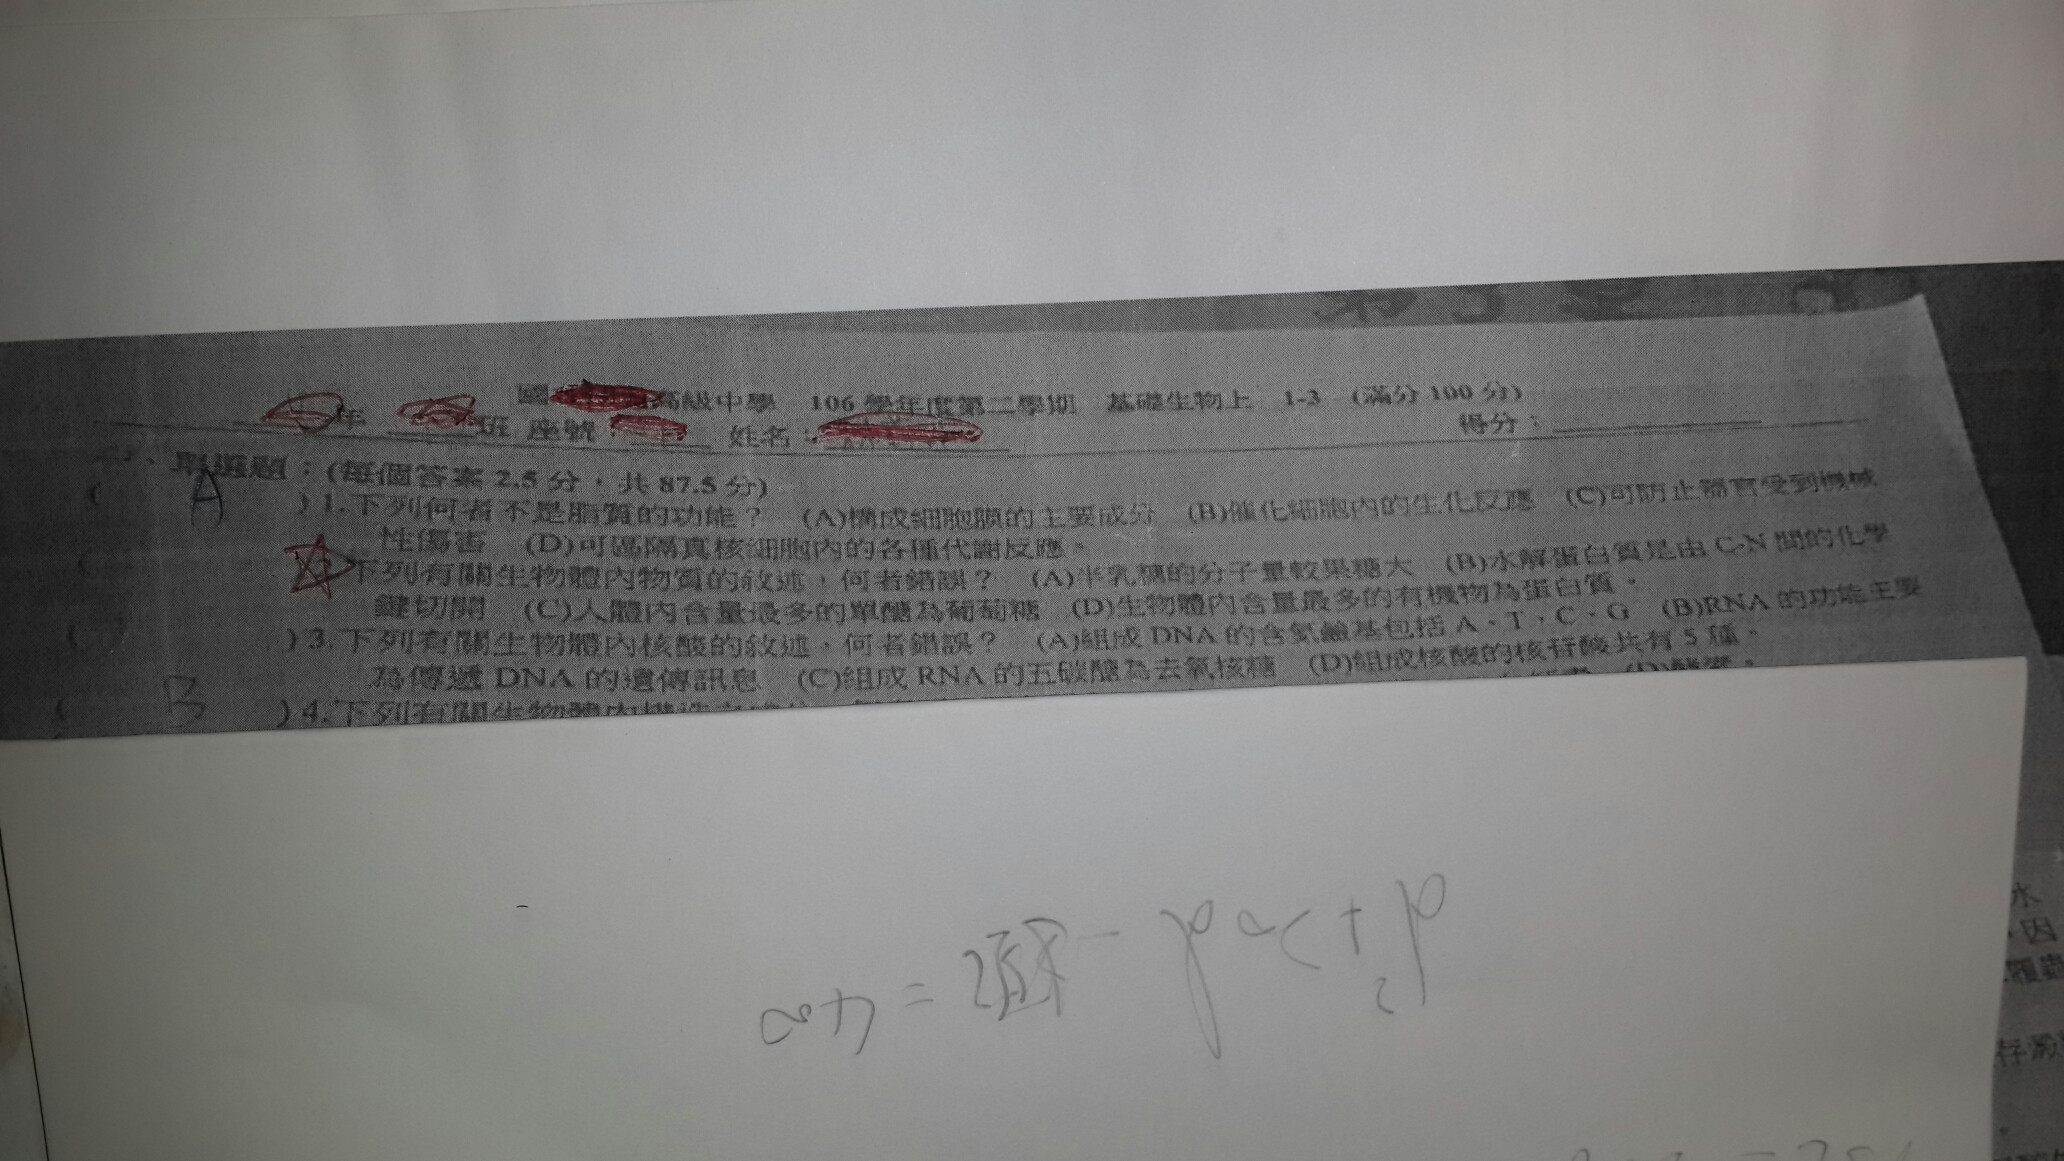 國 高級中學 106 學年度第二學期 基礎生物上 1-3 (滿分 100 分)
年 班 座號： 姓名： 得分：
、單選題：(每個答案 2.5 分，共 87.5 分)
( A )1.下列何者不是脂質的功能？ (A)構成細胞膜的主要成分 (B)催化細胞內的生化反應 (C)可防止器官受到機械
性傷害 (D)可區隔真核細胞內的各種代謝反應。
( 下列有關生物體內物質的敘述，何者錯誤？ (A)半乳糖的分子量較果糖大 (B)水解蛋白質是由 C-N 間的化學
鍵切開 (C)人體內含量最多的單醣為葡萄糖 (D)生物體內含量最多的有機物為蛋白質。
( )3.下列有關生物體內核酸的敘述，何者錯誤？ (A)組成 DNA 的含氮鹼基包括 A、T、C、G (B)RNA 的功能主要
為傳遞 DNA 的遺傳訊息 (C)組成 RNA 的五碳醣為去氧核糖 (D)組成核酸的核苷酸共有 5 種。
( B )4.下列有關生物體內構造
水
，因
存